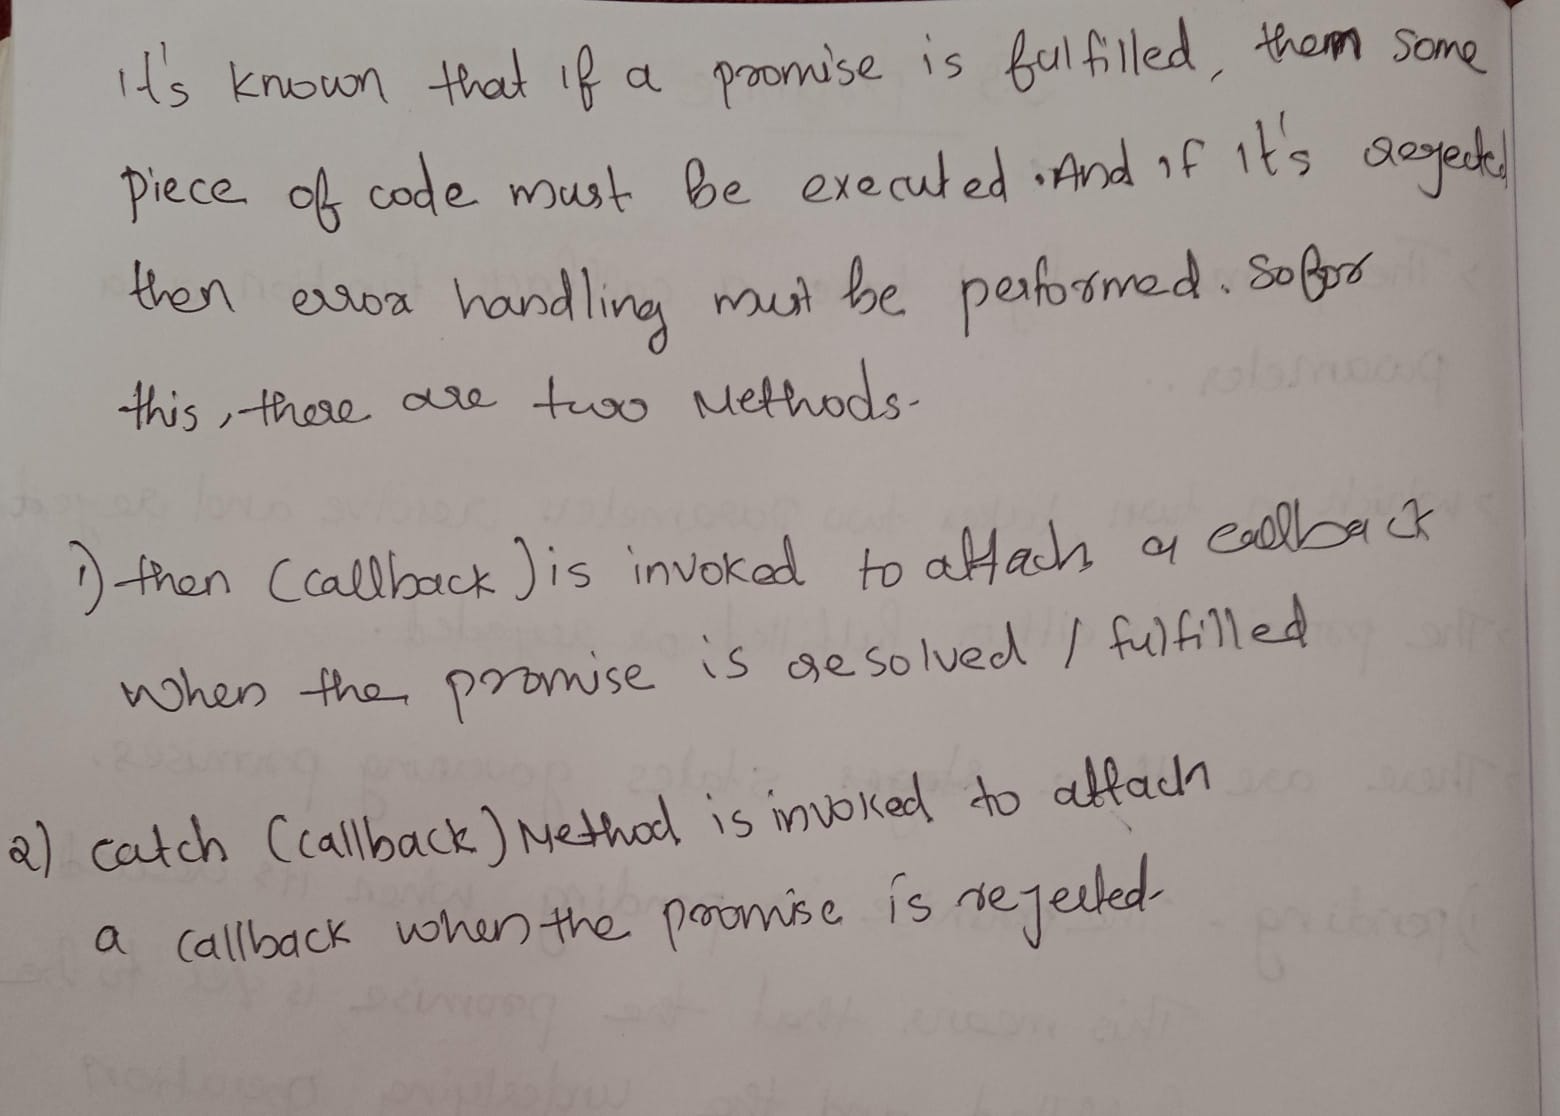 it's known that if a promise is fulfilled, them some
piece of code must be executed. And if it's rejected
then error handling must be performed. So for
this, there are two Methods.
1) then (callback) is invoked to attach a callback
when the promise is resolved / fulfilled
2) catch (callback) Method is invoked to attach
a callback when the promise is rejected.